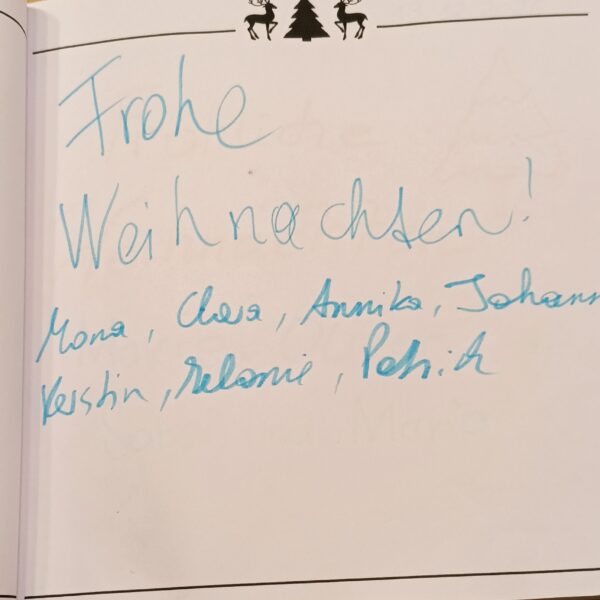 Frohe
Weihnachten!
Mona, Clara, Annika, Johann
Kerstin, Melanie, Patrick